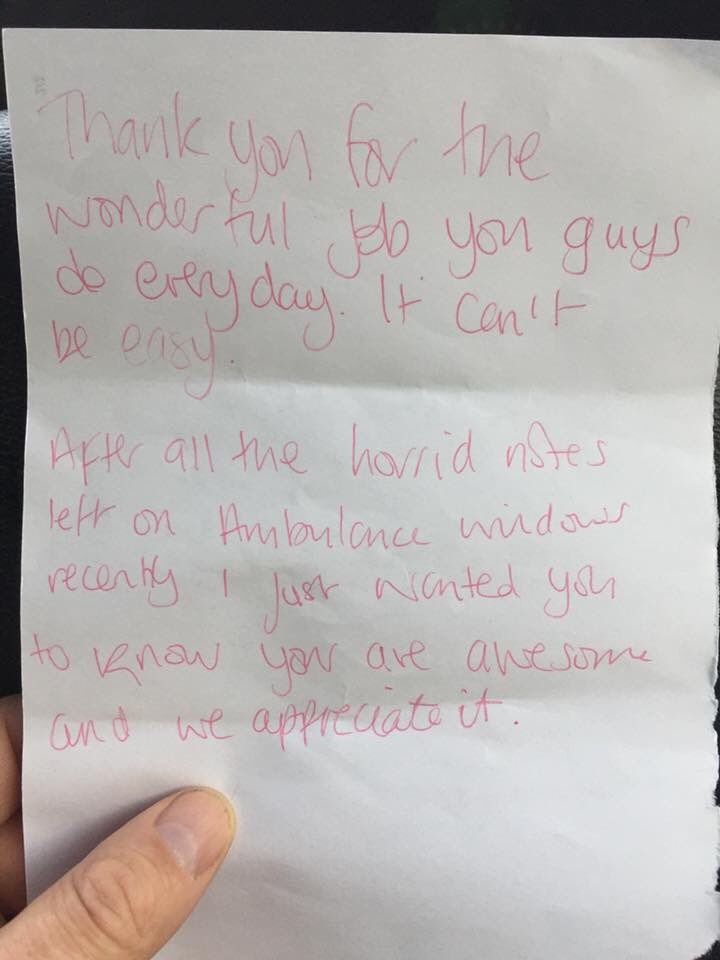 Thank you for the
wonderful job you guys
do everyday. It can't
be easy.
After all the horrid notes
left on Ambulance windows
recently I just wanted you
to know you are awesome
and we appreciate it.